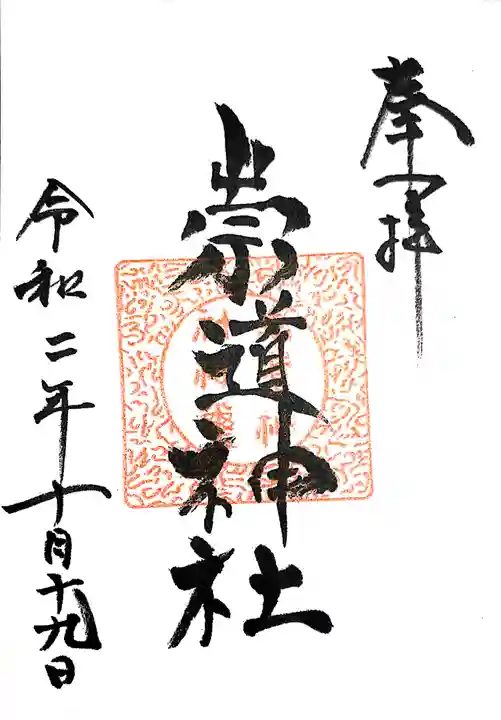 奉拝
崇道神社
令和二年十月十九日